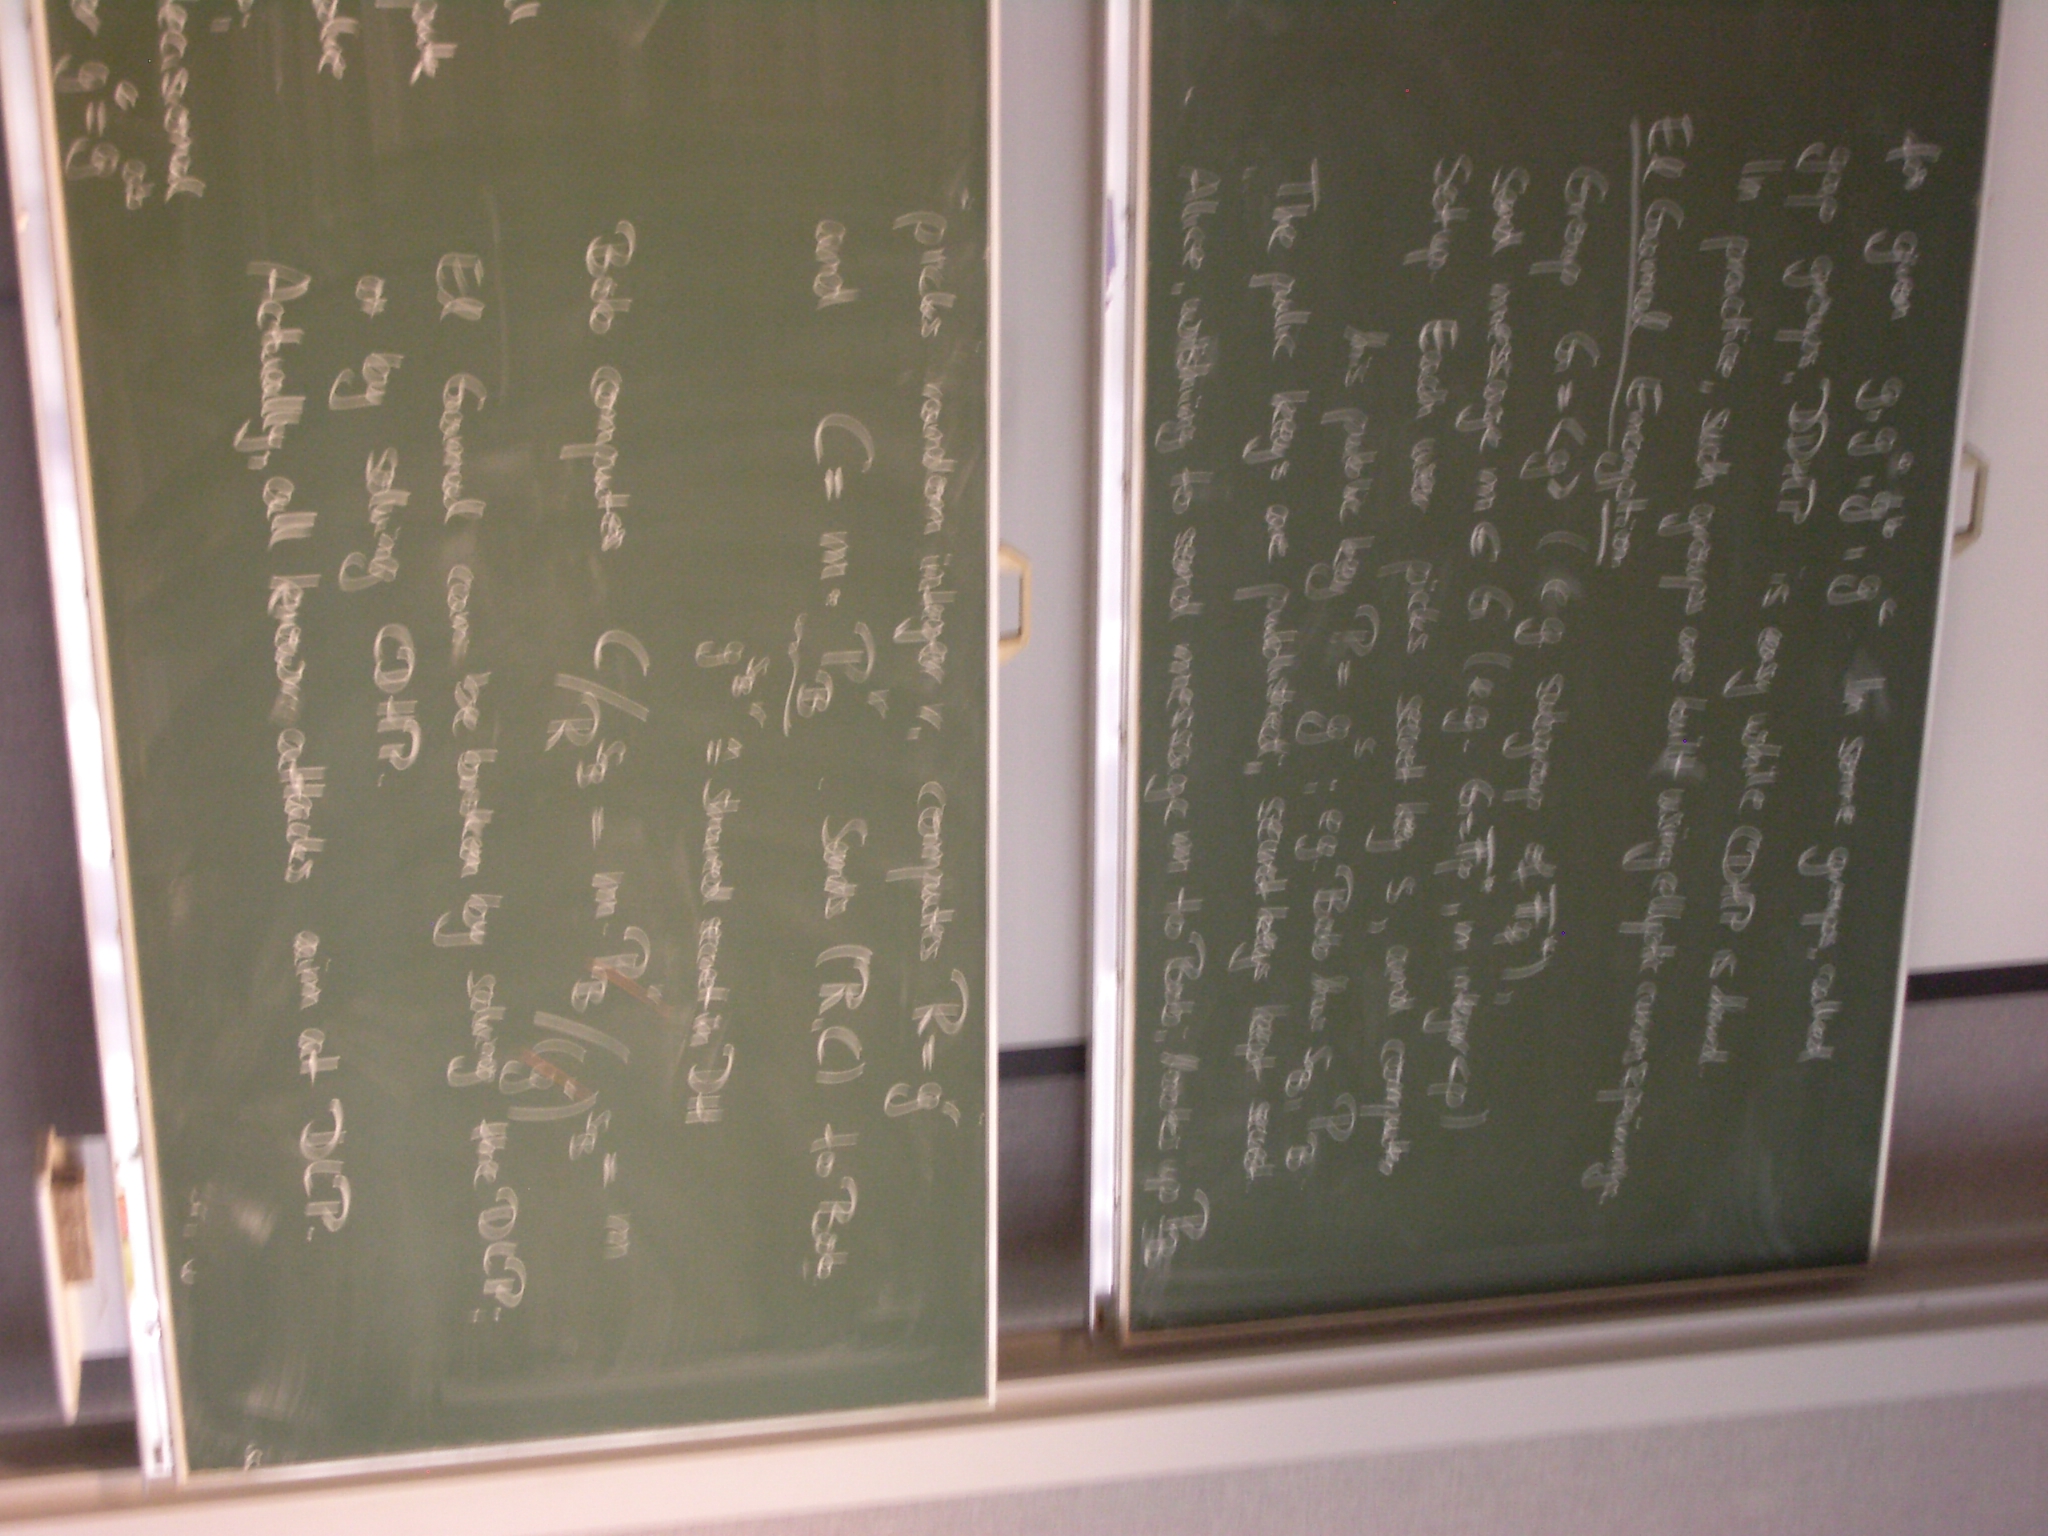 for given g, g^a, g^b, g^c. In some groups, called
gap groups, DDHP is easy while CDHP is hard
In practice, such groups are built using elliptic curves + pairings
El Gamal Encryption
Group G = <g> (eg subgroup of F_q^*),
Send message m ∈ G (eg. G = F_p^*, m integer < p)
Setup Each user picks secret key s, and computes
his public key P = g^s; eg. Bob has s_B, P_B
The public keys are published, secret keys kept secret
Alice, wishing to send message m to Bob, looks up P_B
picks random integer r, computes R = g^r
and C = m · P_B^r. Sends (R, C) to Bob
g^{s_B r} = shared secret in DH
Bob computes C/R^{s_B} = m · P_B^r / (g^r)^{s_B} = m
El Gamal can be broken by solving the DLP;
or by solving CDHP.
Actually, all known attacks aim at DLP.